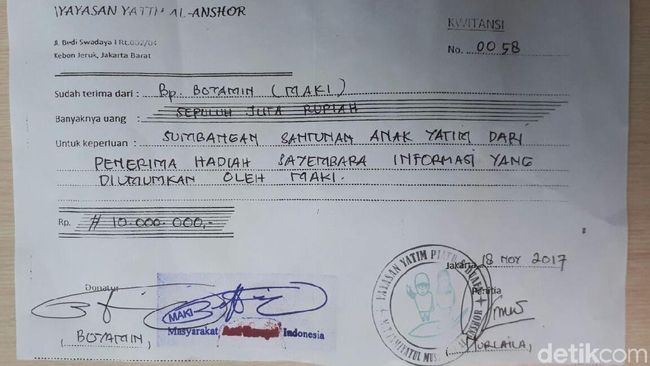 YAYASAN YATIM AL-ANSHOR
KWITANSI
Jl. Budi Swadaya I Rt.002/04
Kebon Jeruk, Jakarta Barat
No. 0058
Sudah terima dari : Bp. BOYAMIN (MAKI)
Banyaknya uang : SEPULUH JUTA RUPIAH
Untuk keperluan : SUMBANGAN SANTUNAN ANAK YATIM DARI
PENERIMA HADIAH SAYEMBARA INFORMASI YANG
DIUMUMKAN OLEH MAKI.
Rp. # 10.000.000,-
Jakarta, 18 NOV 2017
Donatur
Panitia
MAKI
Masyarakat Indonesia
YAYASAN YATIM PIATU
AL-ANSHOR
( BOYAMIN )
( NURLAILA )
detikcom